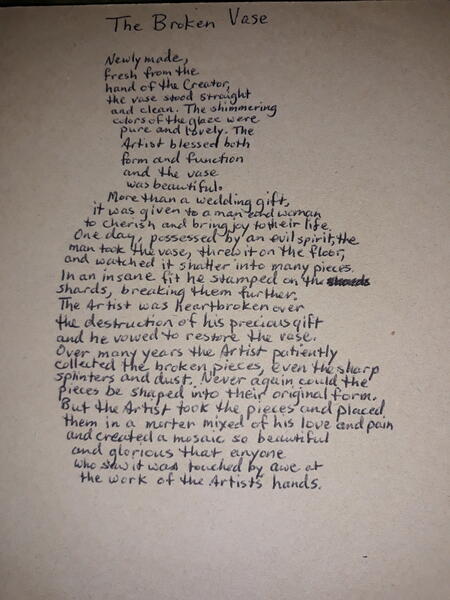 The Broken Vase
Newly made,
fresh from the
hand of the Creator,
the vase stood straight
and clean. The shimmering
colors of the glaze were
pure and lovely. The
Artist blessed both
form and function
and the vase
was beautiful.
More than a wedding gift,
it was given to a man and woman
to cherish and bring joy to their life.
One day, possessed by an evil spirit, the
man took the vase, threw it on the floor,
and watched it shatter into many pieces.
In an insane fit he stamped on the shards
shards, breaking them further.
The Artist was heartbroken over
the destruction of his precious gift
and he vowed to restore the vase.
Over many years the Artist patiently
collected the broken pieces, even the sharp
splinters and dust. Never again could the
pieces be shaped into their original form.
But the Artist took the pieces and placed
them in a morter mixed of his love and pain
and created a mosaic so beautiful
and glorious that anyone
who saw it was touched by awe at
the work of the Artist's hands.